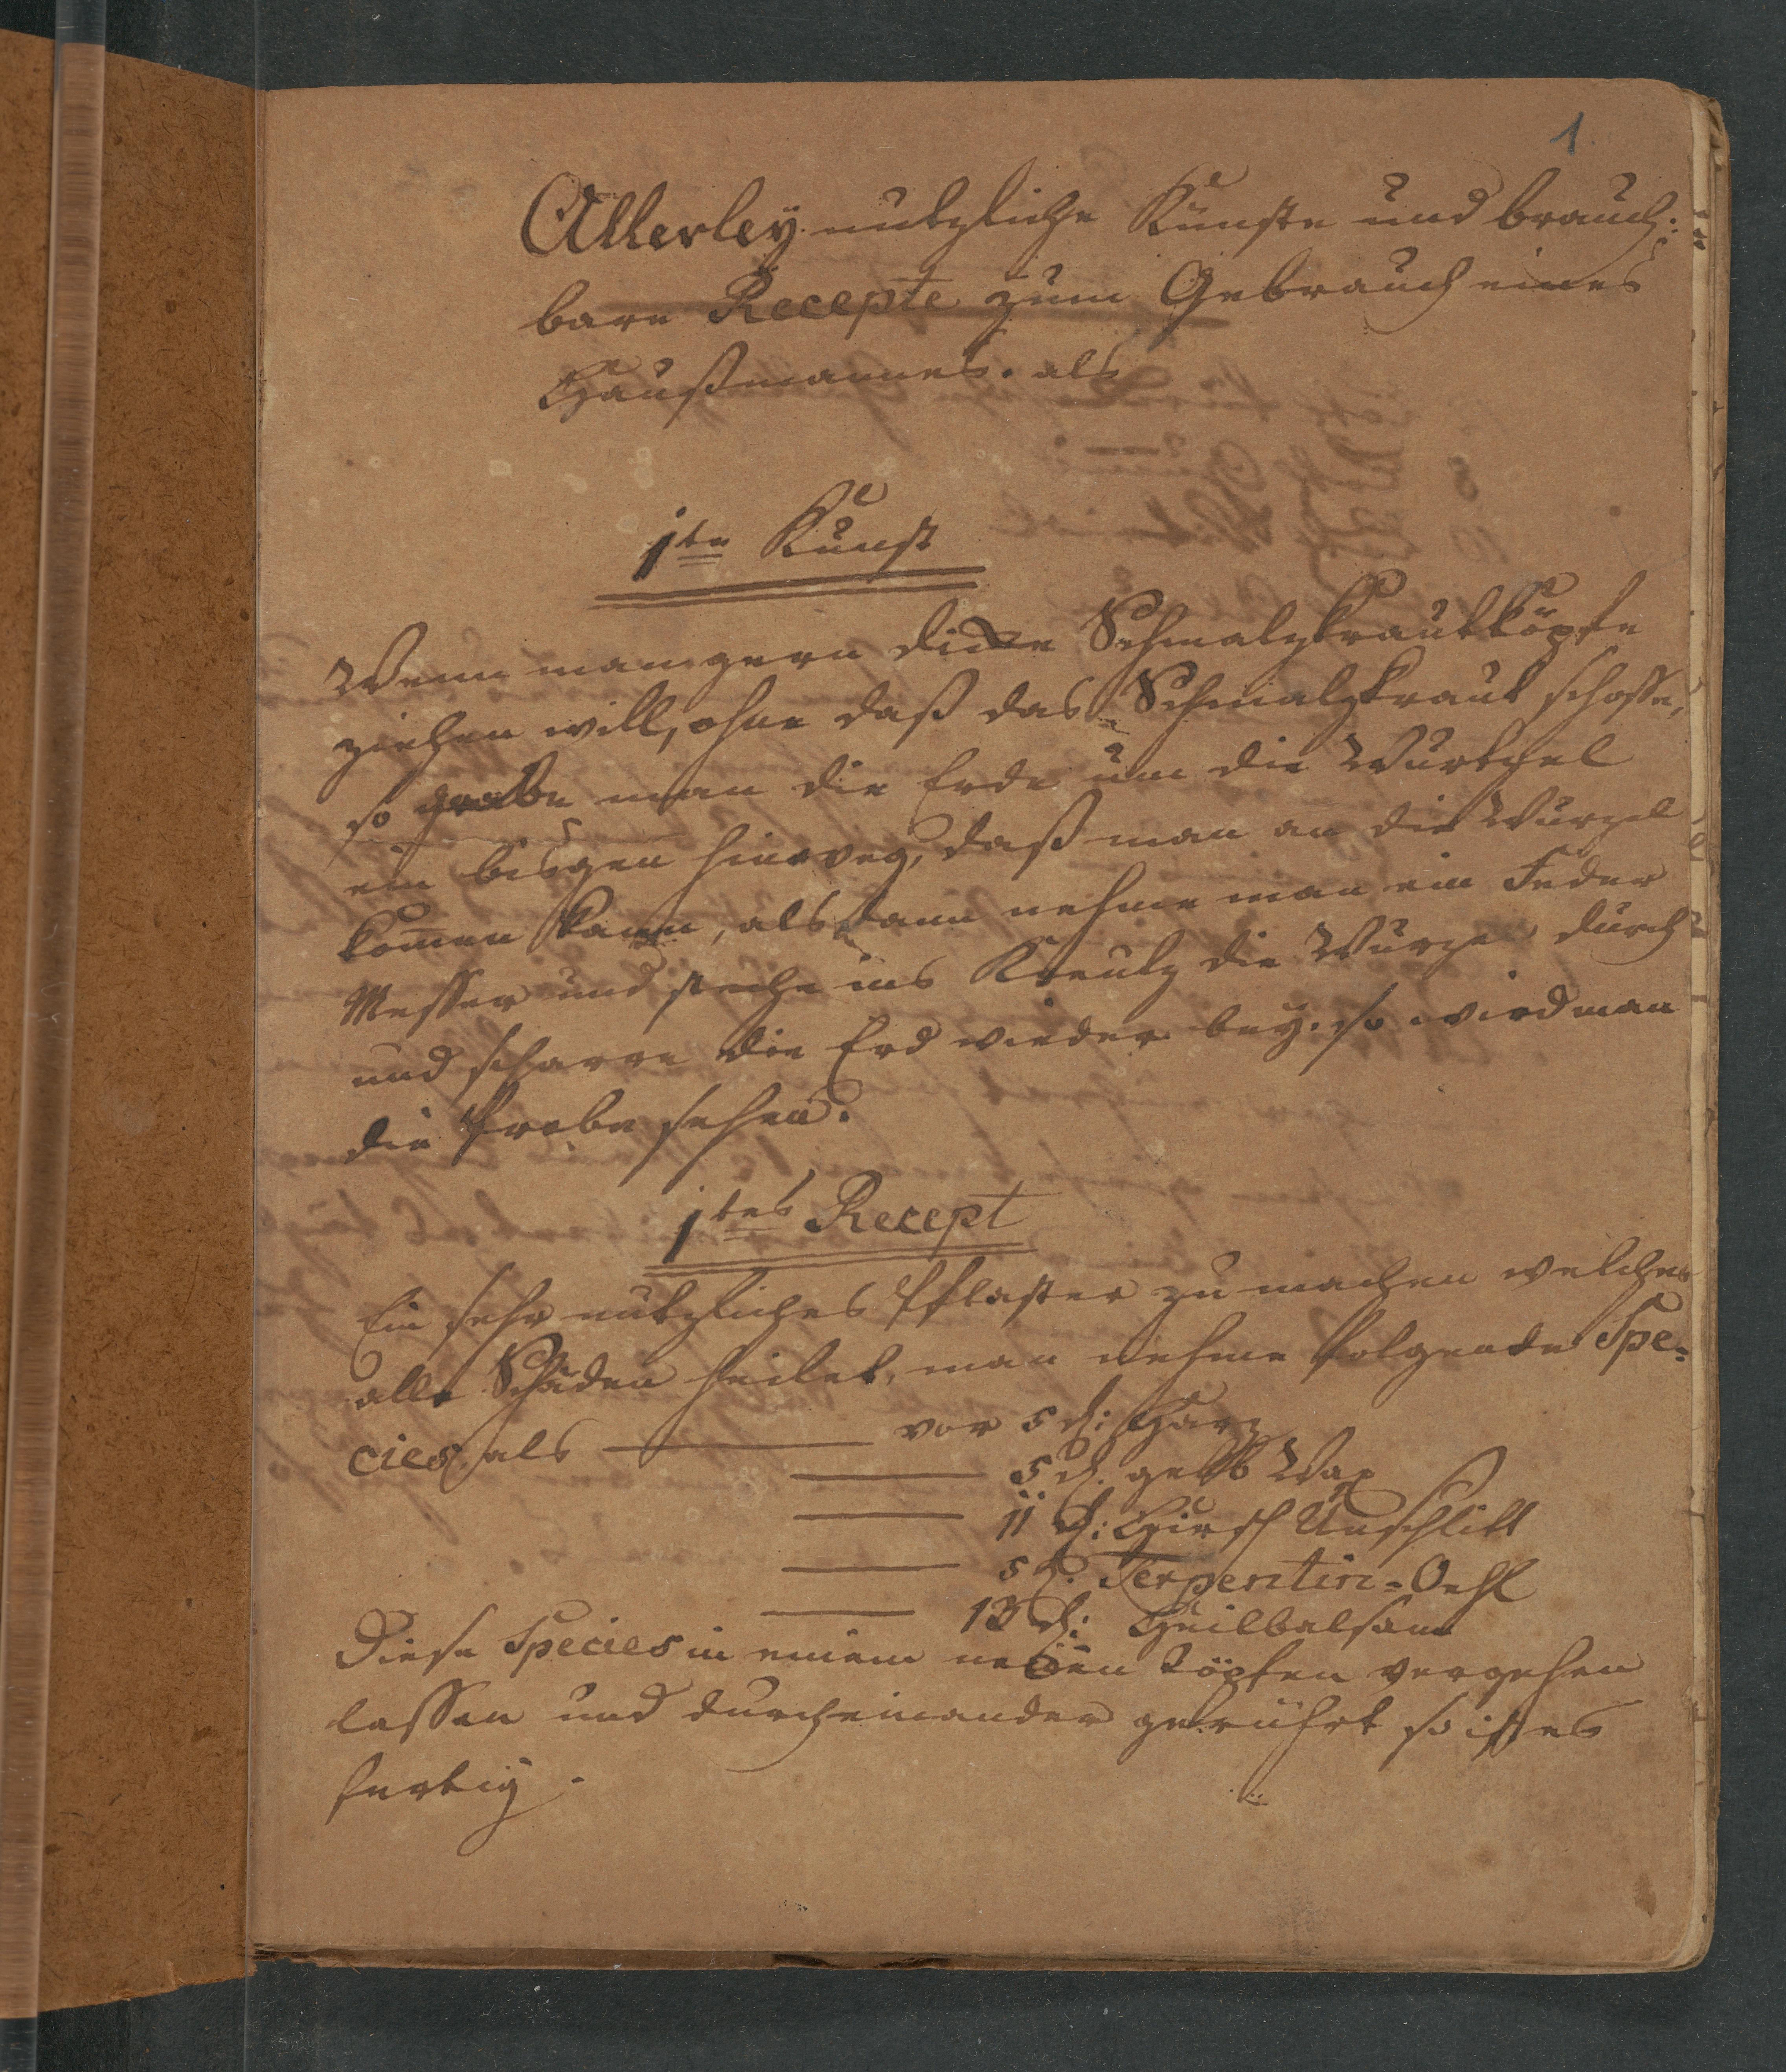 1
Allerley nutzliche Künste und brauch:
bare Recepte zum Gebrauch eines
Haußmannes. als
1te Kunst
Wenn man gern dicke Schmalzkrautköpfe
ziehen will, ohne daß das Schmalzkraut schosse,
so grabe man die Erde um die Wurtzel
ein bisgen hinweg, daß man an die Wurzel
kom̄en kann, als dann nehme man ein Feder
Messer und steche ins Kreutz die Wurzel durch
und scharre die Erd wieder bey. so wird man
die Probe sehen.
1tes Recept
Ein sehr nutzliches Pflaster zu machen welches
alle Schäden heilet, man nehme folgende Spe=
cies. als vor 5 d: Harz
5 d. gelb Wax
11 d: Hirsch Unschlitt
5 d. Terpentin=Oehl
13 d: Heilbalsam
Diese Species in einem neuen Töpfen vergehen
lassen und durcheinander gerührt so ist es
fertig.